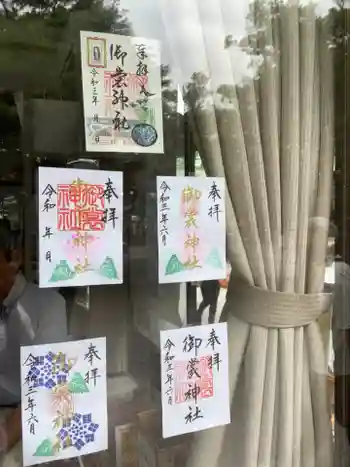 御裳神社
令和三年 月 日
奉拝
御裳神社
令和 年 月 日
奉拝
御裳神社
令和三年六月
奉拝
御裳神社
令和三年六月
奉拝
御裳神社
令和三年六月